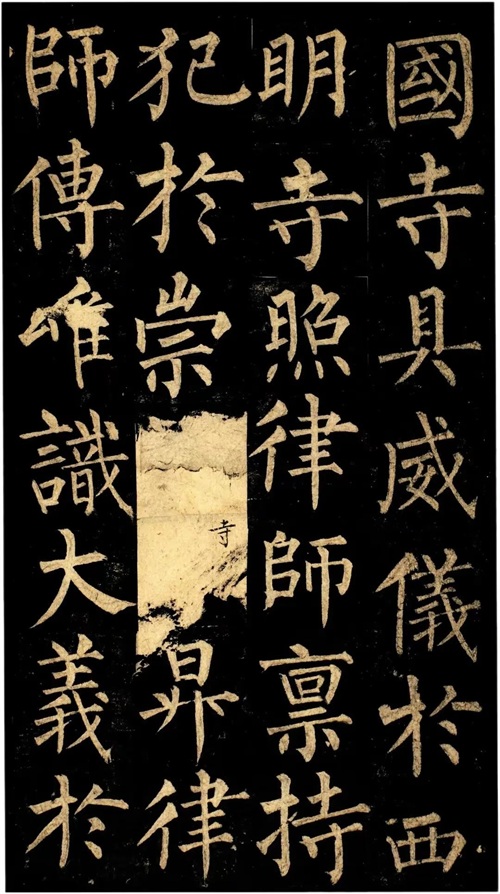 國寺具威儀於西
明寺照律師禀持
犯於崇寺昇律
師傳唯識大義於